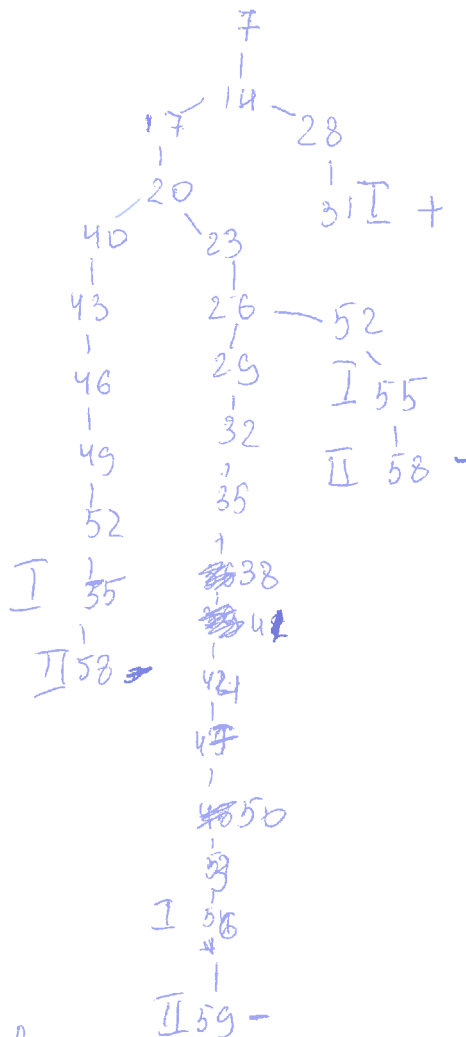 7
14
17 28
20 31 I +
40 23
43 26 52
46 29 I 55
49 32 II 58 -
52 35
I 55 38
II 58 - 41
44
47
50
53
I 56
II 59 -